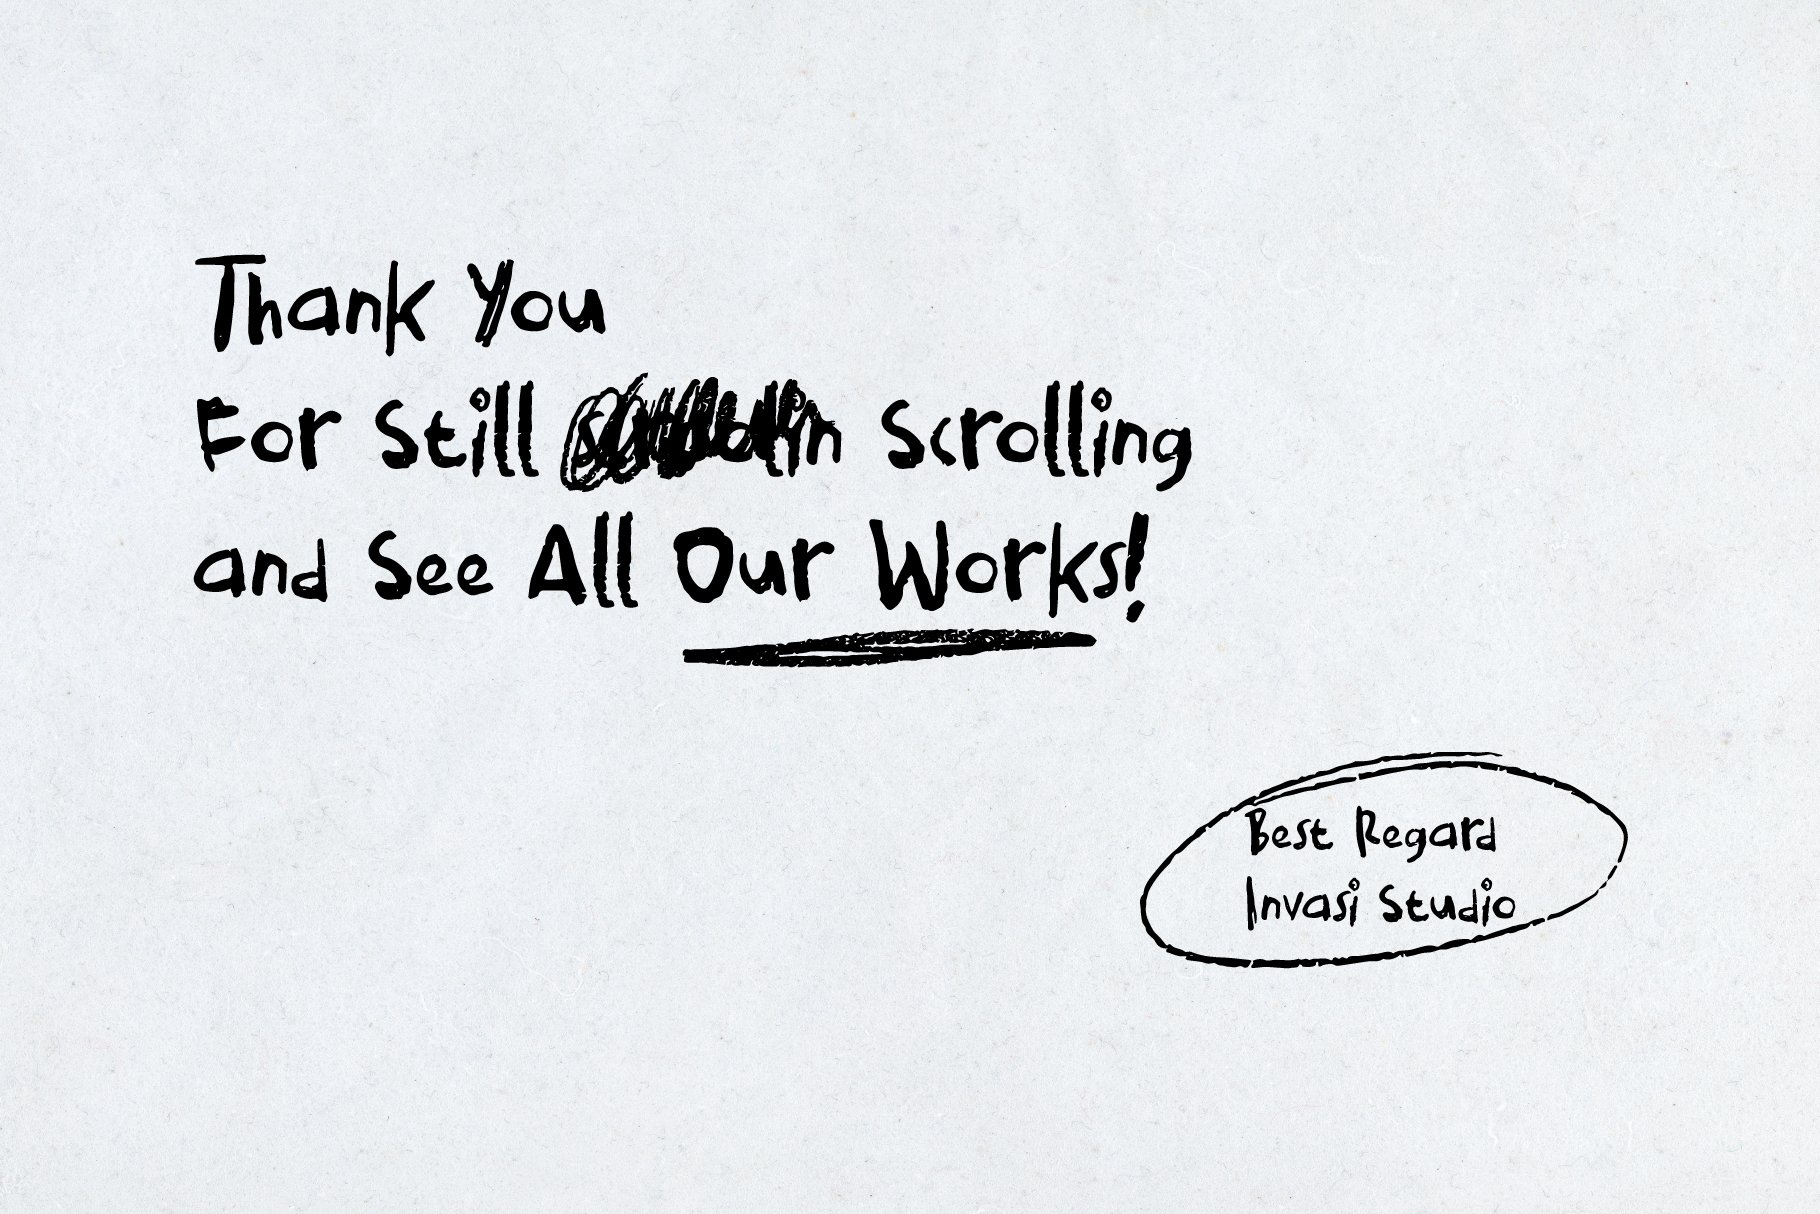 Thank You
For Still Scrolling
and See All Our Works!
Best Regard
Invasi Studio